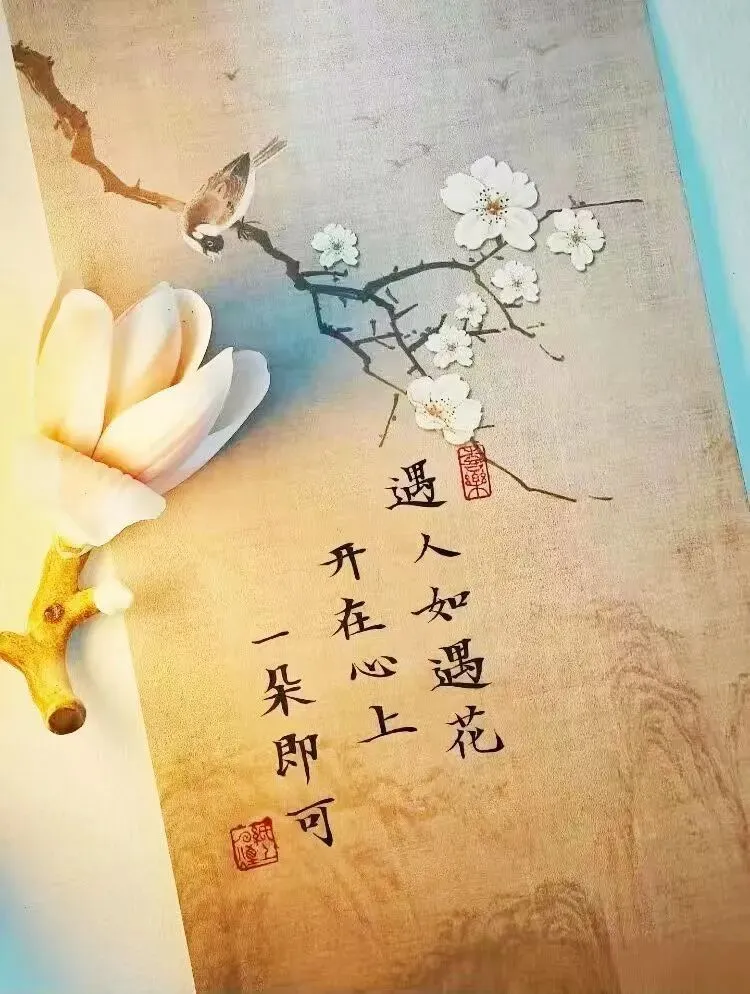 遇人如遇花
开在心上
一朵即可